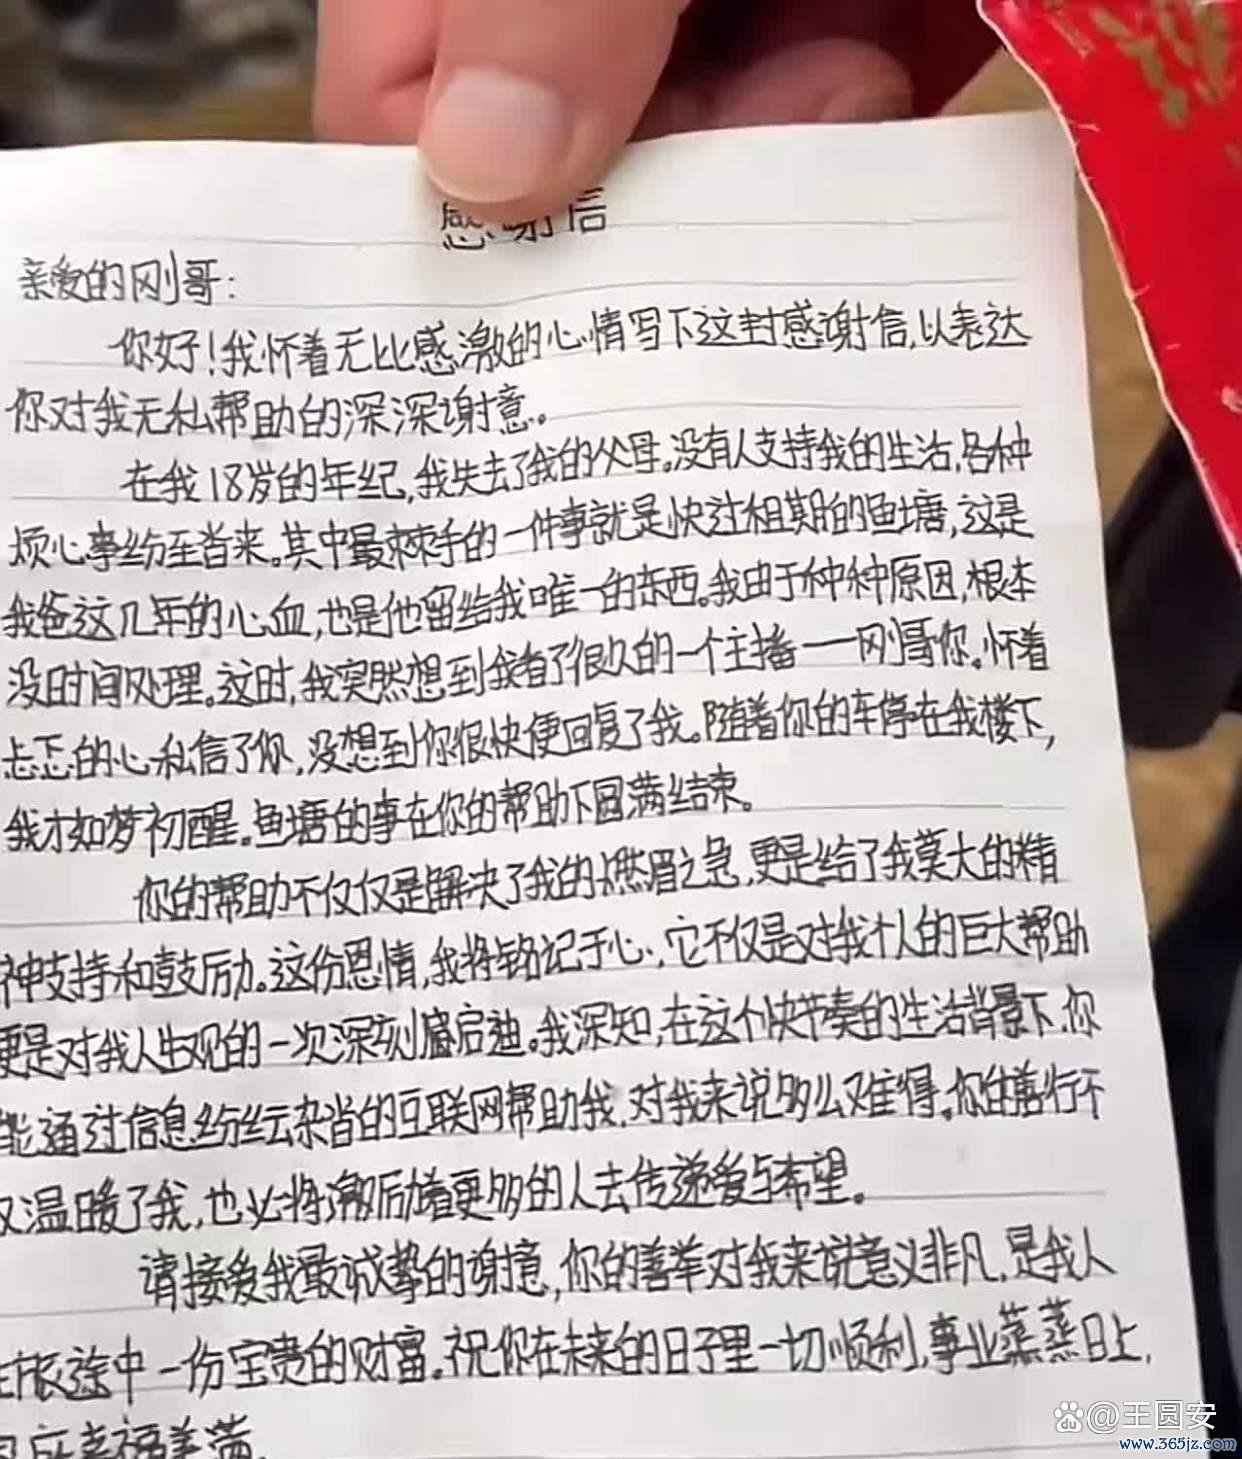 感谢信
亲爱的刚哥:
你好!我怀着无比感激的心情写下这封感谢信,以表达
你对我无私帮助的深深谢意。
在我18岁的年纪,我失去了我的父母。没有人支持我的生活,各种
烦心事纷至沓来。其中最棘手的一件事就是快过租期的鱼塘,这是
我爸这几年的心血,也是他留给我唯一的东西。我由于种种原因,根本
没时间处理。这时,我突然想到我看了很久的一个主播——刚哥你。怀着
忐忑的心私信了你,没想到你很快便回复了我。随着你的车停在我楼下,
我才如梦初醒。鱼塘的事在你的帮助下圆满结束。
你的帮助不仅仅是解决了我的燃眉之急,更是给了我莫大的精
神支持和鼓励。这份恩情,我将铭记于心,它不仅是对我个人的巨大帮助
更是对我人生观的一次深刻启迪。我深知,在这个快节奏的生活背景下,你
能通过信息纷纭杂沓的互联网帮助我,对我来说多么难得。你的善行不
仅温暖了我,也必将激励着更多的人去传递爱与希望。
请接受我最诚挚的谢意,你的善举对我来说意义非凡,是我人
生旅途中一份宝贵的财富。祝你在未来的日子里一切顺利,事业蒸蒸日上,
家庭幸福美满。
@王圆安
www.365jz.com